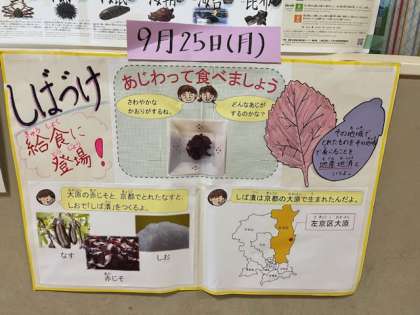 9月25日(月)
しばづけ
給食に
登場!
あじわって食べましょう
さわやかな
かおりがするね。
どんなあじが
するのかな?
その地域で
とれたものをその地域
で食べることを
地産地消と
いうよ。
大原の赤じそと、京都でとれたなすと、
しおで「しば漬」をつくるよ。
なす
赤じそ
しお
しば漬は京都の大原で生まれたんだよ。
左京区大原